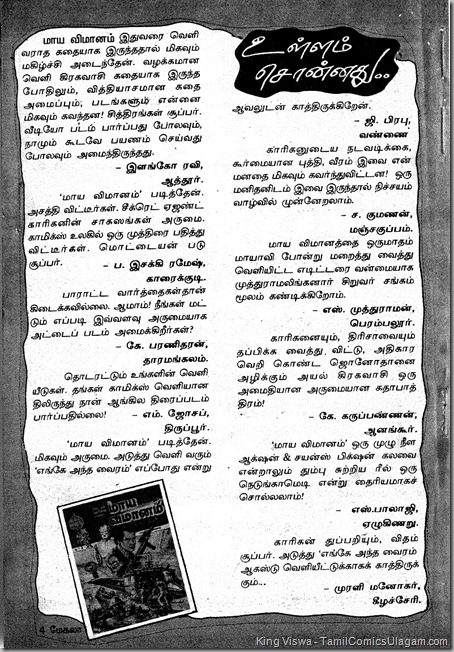 மாய விமானம் இதுவரை வெளி
வராத கதையாக இருந்ததால் மிகவும்
மகிழ்ச்சி அடைந்தேன். வழக்கமான
வெளி கிரகவாசி கதையாக இருந்த
போதிலும், வித்தியாசமான கதை
அமைப்பும்; படங்களும் என்னை
மிகவும் கவந்தன! சித்திரங்கள் சூப்பர்.
வீடியோ படம் பார்ப்பது போலவும்,
நாமும் கூடவே பயணம் செய்வது
போலவும் அமைந்திருந்தது.
– இளங்கோ ரவி,
ஆத்தூர்.
'மாய விமானம்' படித்தேன்.
அசத்தி விட்டீர்கள். சீக்ரெட் ஏஜண்ட்
காரிகனின் சாகஸங்கள் அருமை.
காமிக்ஸ் உலகில் ஒரு முத்திரை பதித்து
விட்டீர்கள். மொட்டையன் படு
சூப்பர்.
– ப. இசக்கி ரமேஷ்,
காரைக்குடி.
பாராட்ட வார்த்தைகள்தான்
கிடைக்கவில்லை. ஆமாம்! நீங்கள் மட்
டும் எப்படி இவ்வளவு அருமையாக
அட்டைப் படம் அமைக்கிறீர்கள்?
– கே. பரணிதரன்,
தாரமங்கலம்.
தொடரட்டும் உங்களின் வெளி
யீடுகள். தங்கள் காமிக்ஸ் வெளியான
திலிருந்து நான் ஆங்கில திரைப்படம்
பார்ப்பதில்லை!
– எம். ஜோசப்,
திருப்பூர்.
'மாய விமானம்' படித்தேன்.
மிகவும் அருமை. அடுத்து வெளி வரும்
'எங்கே அந்த வைரம்' எப்போது என்று
மாய
விமானம்
4 மேகலா
உள்ளம்
சொன்னது..
ஆவலுடன் காத்திருக்கிறேன்.
– ஜி. பிரபு,
வண்ணை
காரிகனுடைய நடவடிக்கை,
கூர்மையான புத்தி, வீரம் இவை என்
மனதை மிகவும் கவர்ந்துவிட்டன! ஒரு
மனிதனிடம் இவை இருந்தால் நிச்சயம்
வாழ்வில் முன்னேறலாம்.
– ச. குமணன்,
மஞ்சகுப்பம்.
மாய விமானத்தை ஒருமாதம்
மாயாவி போன்று மறைத்து வைத்து
வெளியிட்ட எடிட்டரை வன்மையாக
முத்துராமலிங்கனார் சிறுவர் சங்கம்
மூலம் கண்டிக்கிறோம்.
– எஸ். முத்துராமன்,
பெரம்பலூர்.
காரிகனையும், திரிசாவையும்
தப்பிக்க வைத்து, விட்டு, அதிகார
வெறி கொண்ட ஜொனோதானை
அழிக்கும் அயல் கிரகவாசி ஒரு
அமைதியான அருமையான கதாபாத்
திரம்!
– கே. கருப்பண்ணன்,
ஆனங்கூர்.
'மாய விமானம்' ஒரு முழு நீள
ஆக்ஷன் & சயன்ஸ் பிக்ஷன் கலவை
என்றாலும் தும்பு சுற்றிய ரீல் ஒரு
நெடுங்காமெடி என்று தைரியமாகச்
சொல்லலாம்!
– எஸ்.பாலாஜி,
ஏழுகிணறு.
காரிகன் துப்பறியும், விதம்
சூப்பர். அடுத்து 'எங்கே அந்த வைரம்
ஆகஸ்டு வெளியீட்டுக்காகக் காத்திருக்
கும்...
– முரளி மனோகர்,
கீழச்சேரி.
King Viswa - TamilComicsUlagam.com